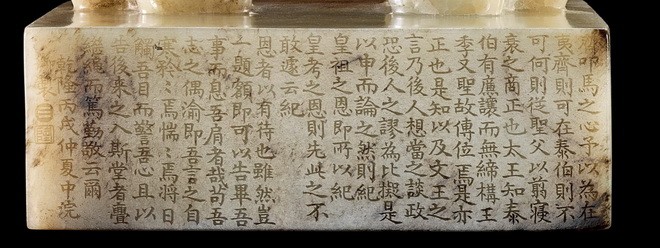 齊叩馬之心予以為在
夷齊則可在泰伯則不
可何則從聖父以翦寢
衰之商正也太王知泰
伯有廉讓而無締構王
季又聖故傳位焉是亦
正也是知以及文王之
言乃後人想當之談政
恐後人之謬為比擬是
以申而論之然則紀
皇祖之恩即所以紀
皇考之恩則先此之不
敢遽云紀
恩者以有待也雖然豈
一題額即可以告畢吾
事而息吾肩者哉茍吾
志之偶渝即吾言之自
寒矜々焉惴々焉將日
觸吾目而警吾心且以
告後来之入斯堂者亹
繼繩而篤勤敬云爾
乾隆丙戌仲夏中浣
御筆